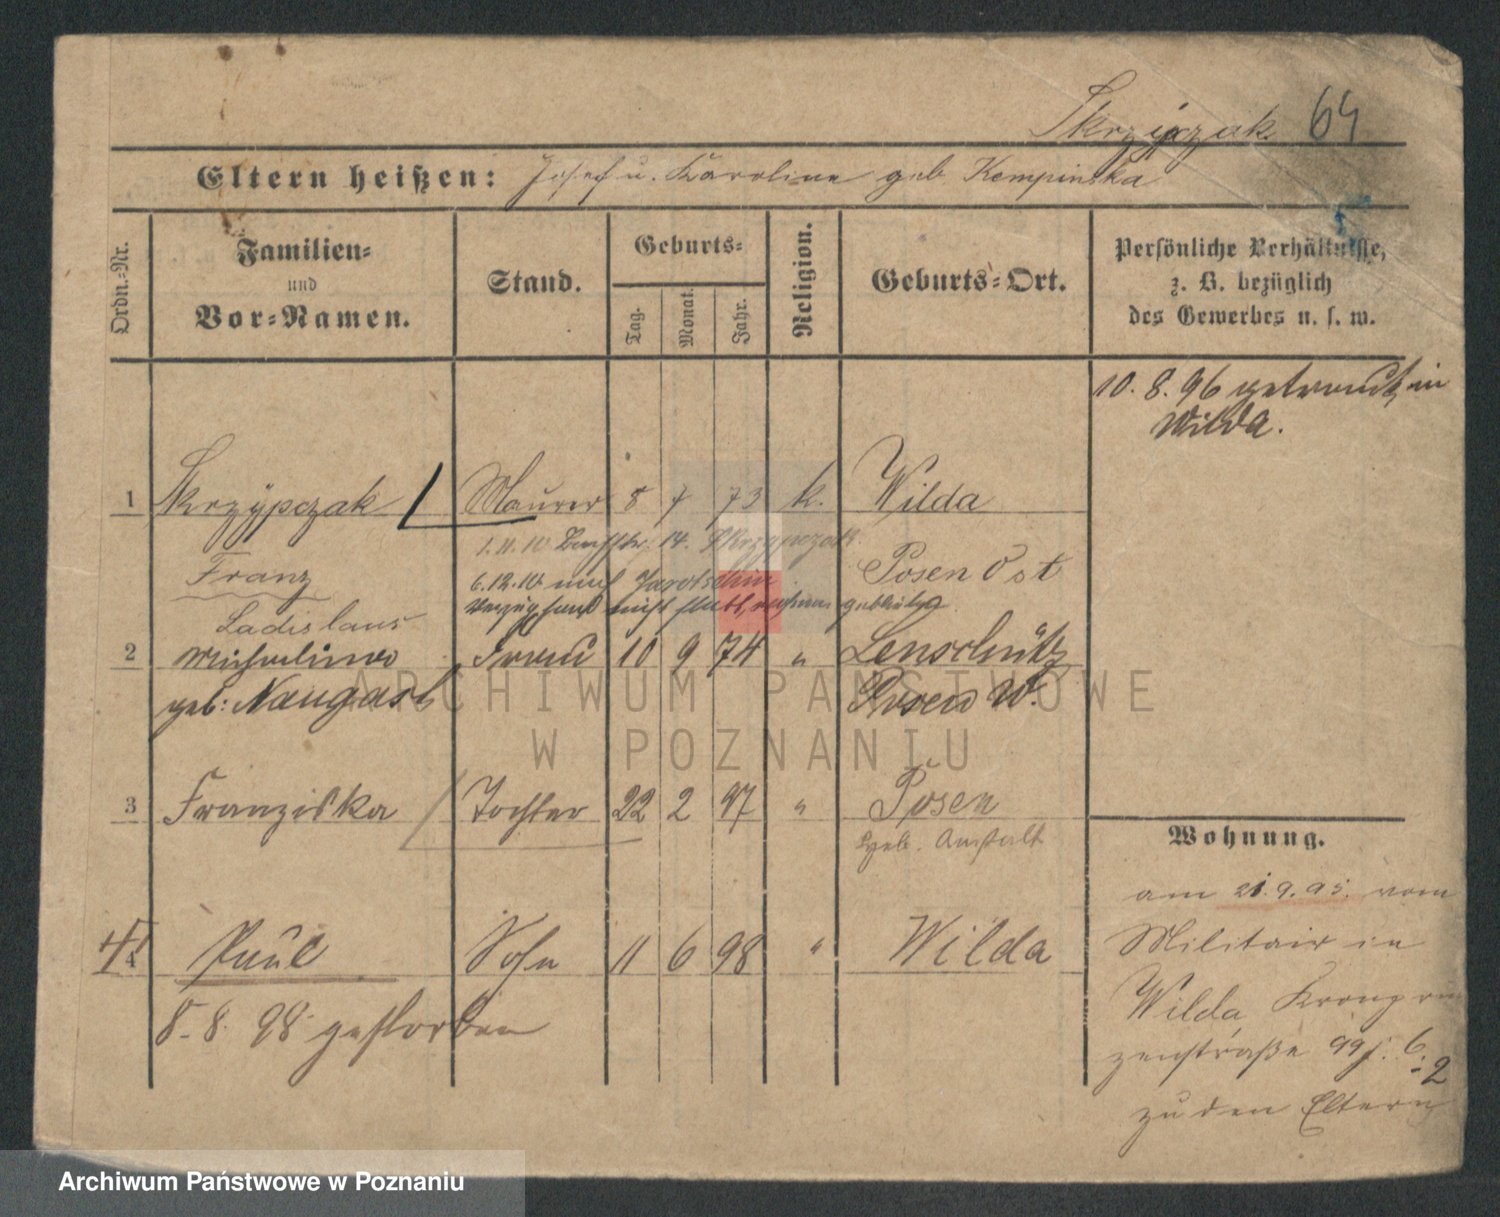 Skrzypczak 64
Eltern heißen: Josef u. Karoline geb. Kempinska
Ordn.-Nr.
Familien-
und
Vor-Namen.
Stand.
Geburts-
Tag. Monat. Jahr.
Religion.
Geburts-Ort.
Persönliche Verhältnisse,
z. B. bezüglich
des Gewerbes u. s. w.
10. 8. 96 getraut in
Wilda.
1 Skrzypczak Maurer 8 7 73 k. Wilda
1.11.10 14. Skrzypczak
Franz Posen Ost
6.12.10 nach Jarotschin
Verzug hat nicht statt
Ladislaus
2 Michalina Frau 10 9 74 " Lenschütz
geb: Naugast Posen W.
3 Franziska Tochter 22 2 97 " Posen
Geb. Anstalt
4. Paul Sohn 11 6 98 " Wilda
8. 8. 98 gestorben
Wohnung.
am 21.9.95. vom
Militair in
Wilda Kronprin
zenstraße 99 6.
2
zu den Eltern
ARCHIWUM PAŃSTWOWE
W POZNANIU
Archiwum Państwowe w Poznaniu